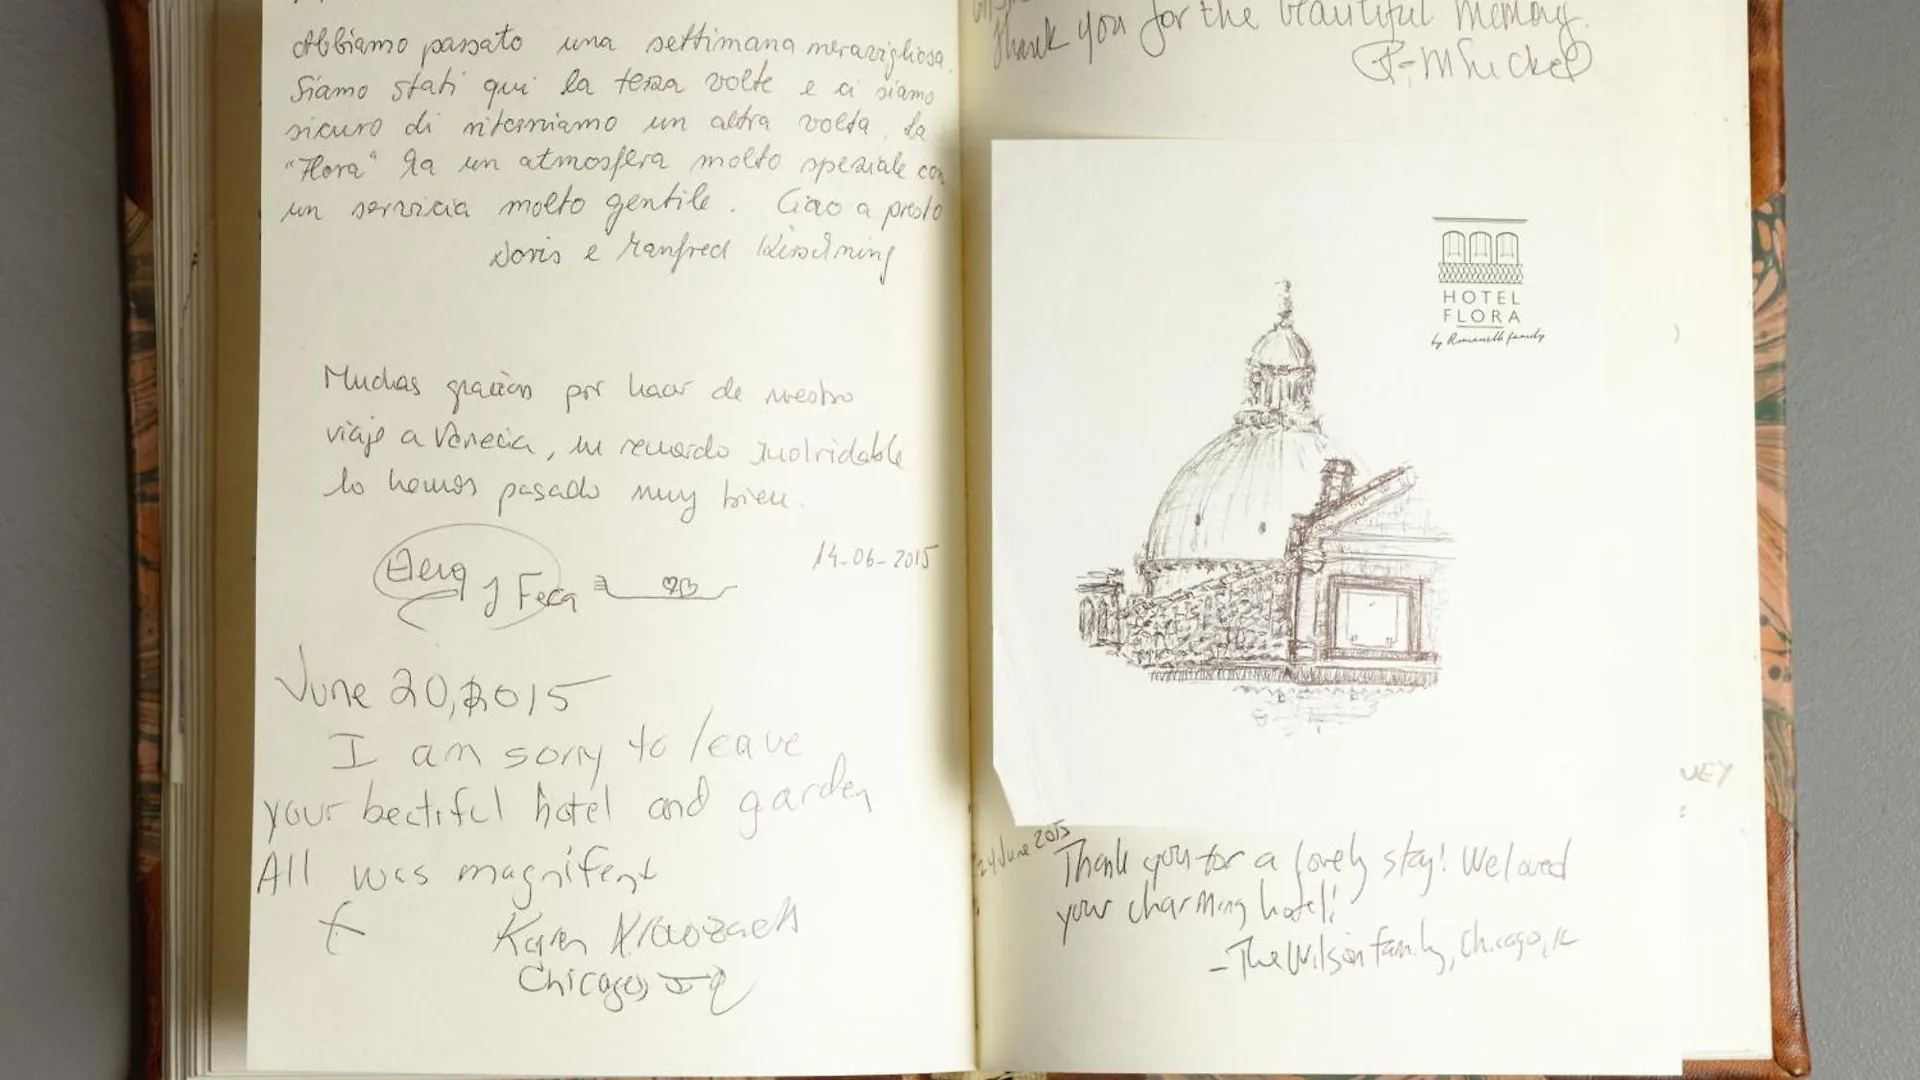 Abbiamo passato una settimana meravigliosa.
Siamo stati qui la terza volte e ci siamo
sicuro di ritorniamo un altra volta. La
"Flora" ha un atmosfera molto speziale con
un servicia molto gentile. Ciao a presto
Doris e Manfred
Muchas gracias por hacer de nuestro
viaje a Venecia, un recuerdo inolvidable
lo hemos pasado muy bien.
y
14-06-2015
June 20, 2015
I am sorry to leave
your bectiful hotel and garden
All was magnifent
Karen
Chicago
Thank you for the beautiful memory.
HOTEL
FLORA
by Romanelli family
NEY
24 June 2015
Thank you for a lovely stay! We loved
your charming hotel!
- The Wilson Family, Chicago, IL